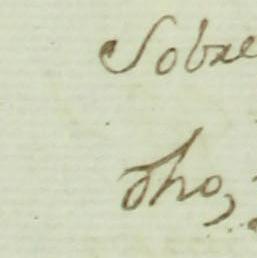 Sobre
dho,